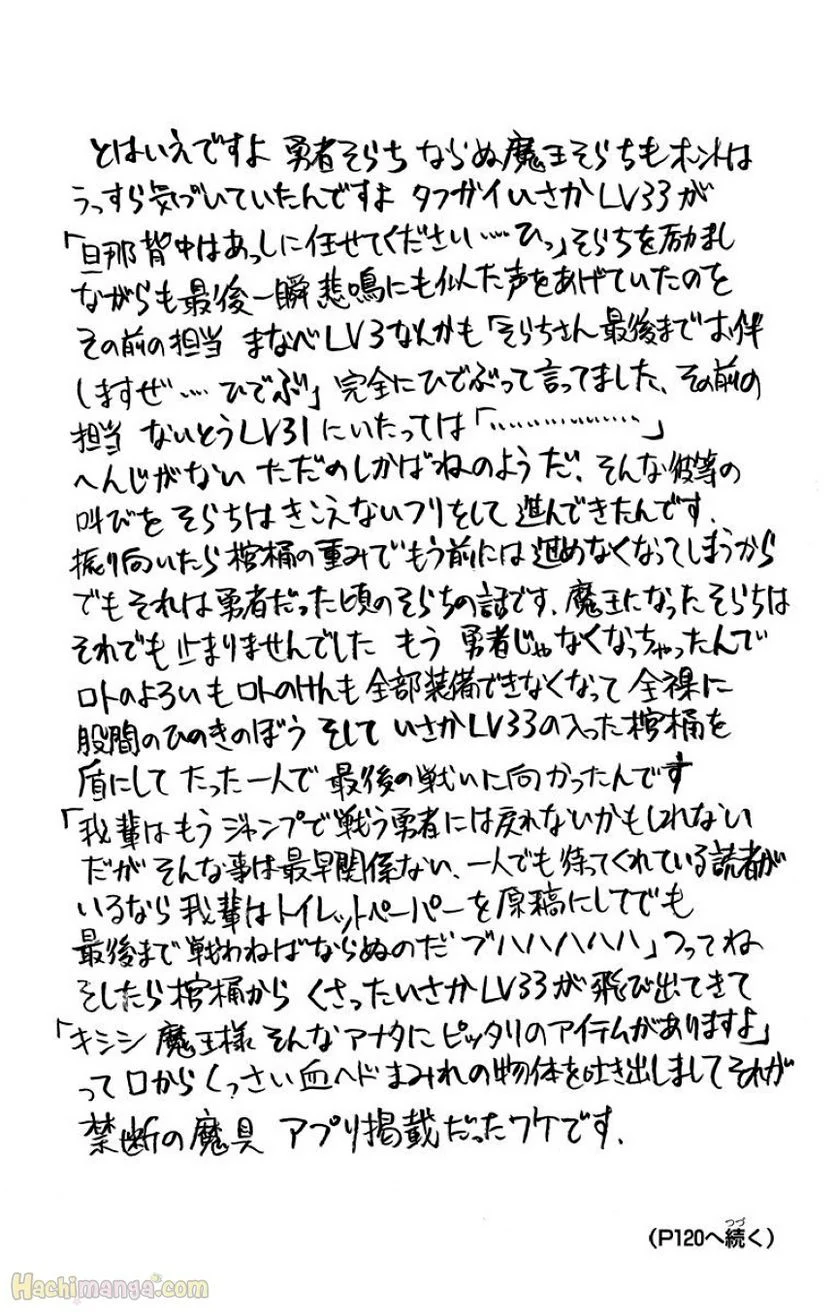 とはいえですよ 勇者そらち ならぬ魔王そらちもホントは
うっすら気づいていたんですよ タフガイいさかLV33が
「旦那背中はあっしに任せてください……ひっ」そらちを励まし
ながらも最後一瞬悲鳴にも似た声をあげていたのを
その前の担当 まなべLV3なんかも「そらちさん最後までお伴
しますぜ…. ひでぶ」完全にひでぶって言ってました、その前の
担当 ないとうLV31にいたっては「………………」
へんじがない ただのしかばねのようだ、そんな彼等の
叫びを そらちはきこえないフリをして 進んできたんです.
振り向いたら棺桶の重みでもう前には進めなくなってしまうから
でもそれは勇者だった頃のそらちの話です、魔王になったそらちは
それでも止まりませんでした もう 勇者じゃなくなっちゃったんで
ロトのよろいもロトのけんも全部装備できなくなって 全裸に
股間のひのきのぼう そして いさかLV33の入った棺桶を
盾にして たった一人で 最後の戦いに向かったんです
「我輩はもう ジャンプで戦う勇者には戻れないかもしれない
だが そんな事は最早関係ない、一人でも待ってくれている読者が
いるなら 我輩はトイレットペーパーを原稿にしてでも
最後まで戦わねばならぬのだ ブハハハハハ」つってね
そしたら棺桶から くさったいさかLV33が飛び出てきて
「キシシ 魔王様 そんなアナタに ピッタリのアイテムがありますよ」
って口からくっさい血ヘドまみれの物体を吐き出しまして それが
禁断の魔具 アプリ掲載だったワケです.
(P120へ続く)
つづ
Hachimanga.com